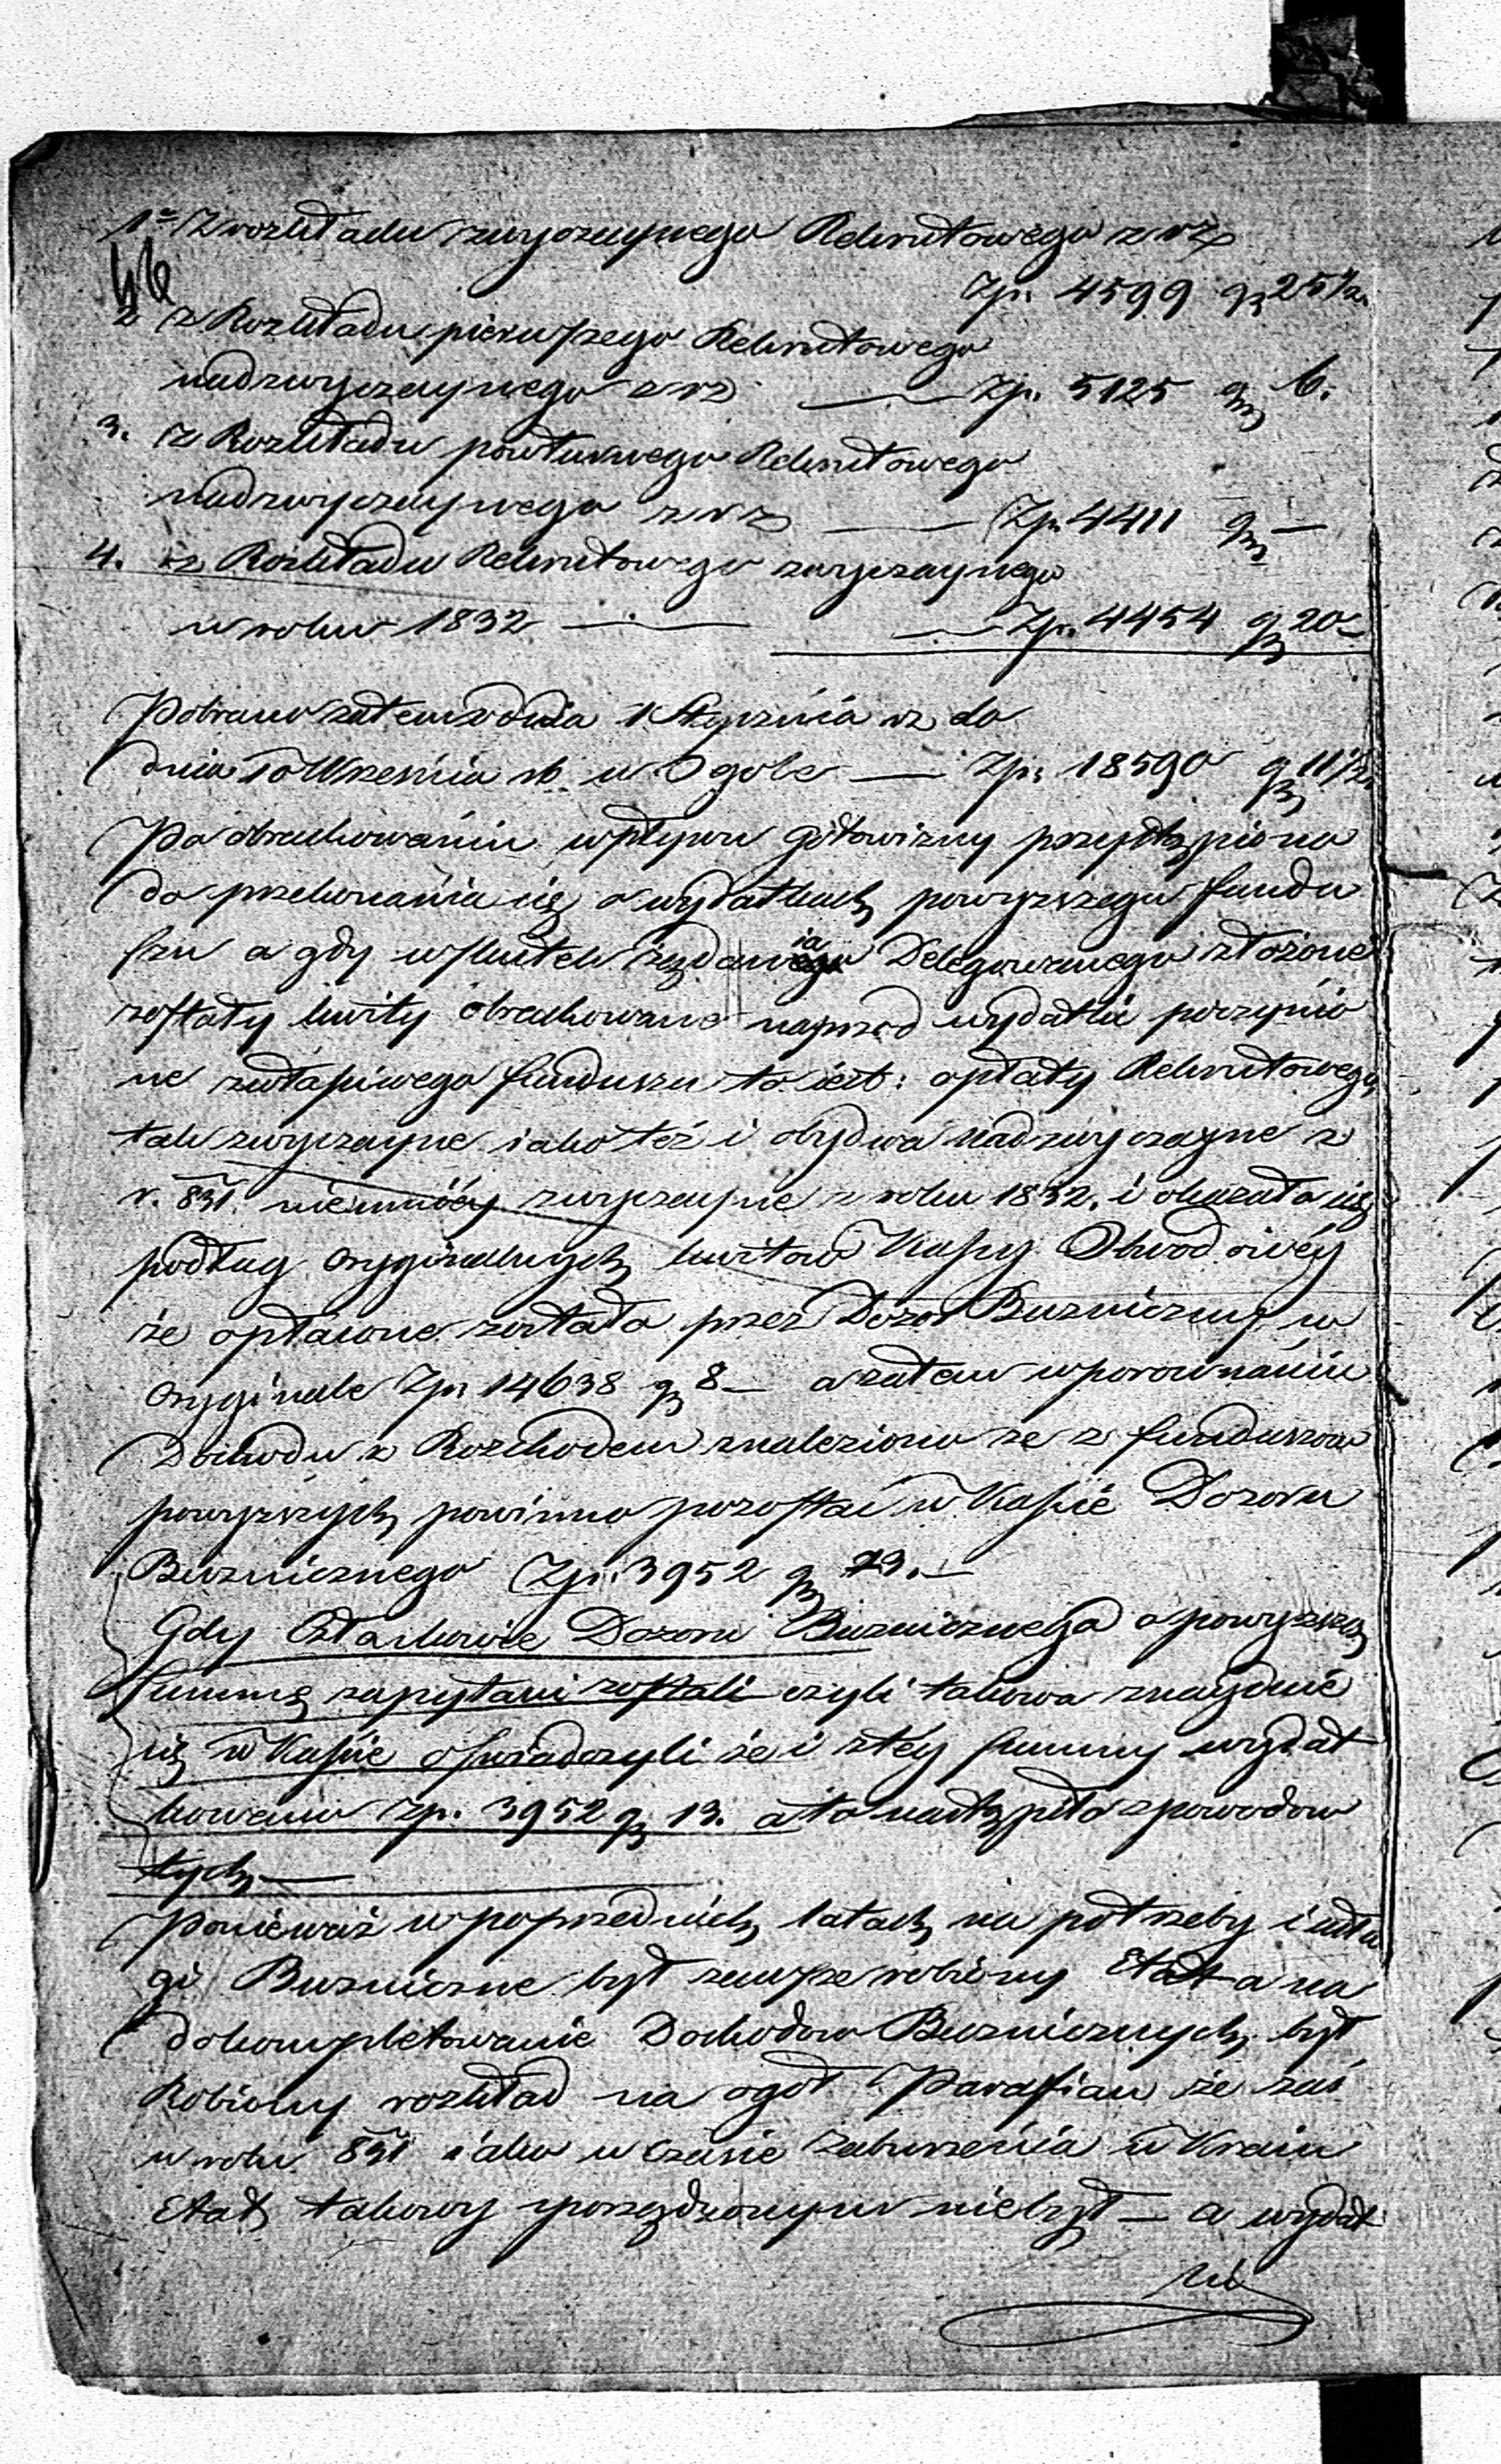 1º Z rozkładu zwyczaynego Rekrutowego z r z
46
Zp. 4599 gr 25½
2 z Rozkładu pierwszego Rekrutowego
nadzwyczaynego z r z — Zp. 5125 gr 6.
3. z Rozkładu powturnego Rekrutowego
nadzwyczaynego z r z — Zp. 4411 gr —
4. z Rozkładu Rekrutowego zwyczaynego
w roku 1832 — Zp. 4454 gr 20 —
Pobrano zatem od dnia 1 Stycznia rz do
dnia 10 Września rb. w Ogole — Zp. 18590 gr 11½
Po obrachowaniu wpływu gotowizny przystąpiono
do przekonania się o wydatkach powyzszego fundu
szu a gdy wskutek rządania Delegowanego złożone
zostały kwity obrachowano naprzod wydatki poczynio
ne zwłaściwego funduszu to iest: opłaty Rekrutowego
tak zwyczayne iako też i obydwa nadzwyczayne z
r. 831. niemniéy zwyczayne z roku 1832. i okazało się
podług oryginalnych kwitow Kassy Obwodowéy
że opłacone zostało przez Dozor Buzniczny w
oryginale Zp. 14638 gr 8 — a zatem w porownaniu
Dochodu z Rozchodem znaleziono ze z funduszow
powyzszych powinno pozostać w Kassie Dozoru
Buznicznego Zp. 3952 gr 13. —
Gdy Członkowie Dozoru Buznicznego o powyzszą
summę zapytani zostali czyli takowa znayduie
się w Kassie oswiadczyli że i z téy summy wydat
kowano Zp. 3952 gr 13. a to nastąpiło z powodow
tych —
Ponieważ w poprzednich latach na potrzeby i usłu
gi Buzniczne był zawsze robiony Etat a na
dokompletowanie Dochodow Buznicznych był
Robiony rozkład na ogoł Parafian że zaś
w roku 831 iako w czasie zaburzenia w Kraiu
Etat takowy sporządzonym niebył — a wydat
ki